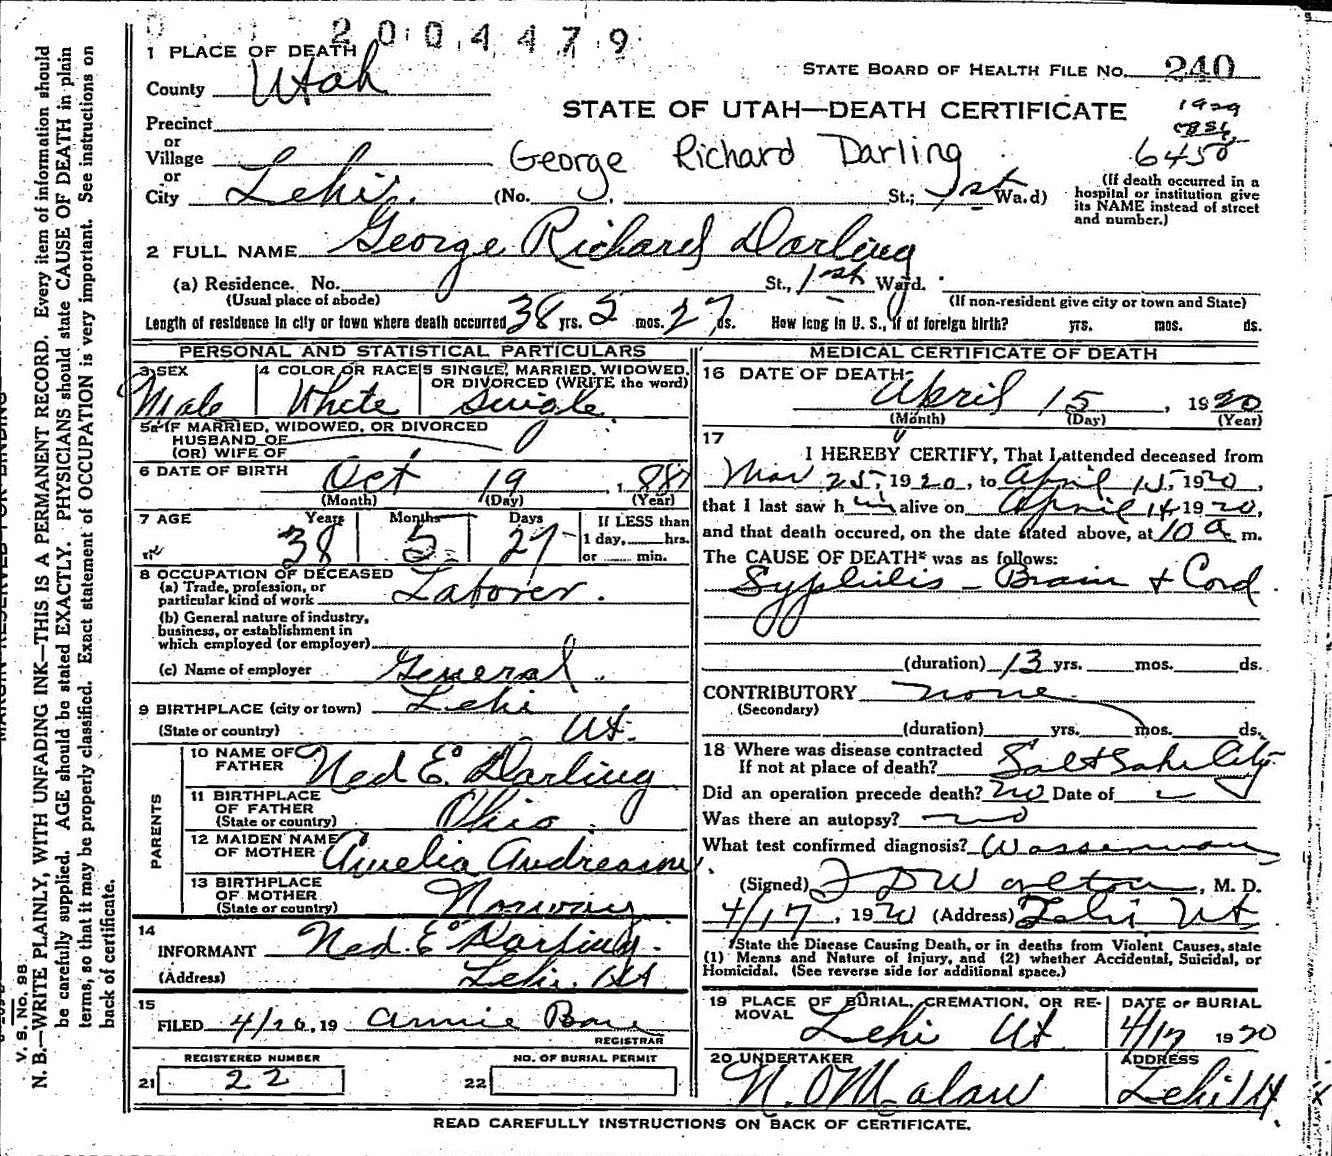 2004479
1 PLACE OF DEATH
STATE BOARD OF HEALTH FILE NO. 240
County Utah
STATE OF UTAH—DEATH CERTIFICATE
1929
Precinct
6450
or
Village
George Richard Darling
or
City Lehi. (No. St.; 1st Wa.d)
(If death occurred in a hospital or institution give its NAME instead of street and number.)
2 FULL NAME George Richard Darling
(a) Residence. No. St., 1st Ward.
(Usual place of abode) (If non-resident give city or town and State)
Length of residence in city or town where death occurred 38 yrs. 5 mos. 27 ds. How long in U. S., if of foreign birth? yrs. mos. ds.
PERSONAL AND STATISTICAL PARTICULARS
3 SEX Male
4 COLOR OR RACE White
5 SINGLE, MARRIED, WIDOWED, OR DIVORCED (WRITE the word) Single
5a IF MARRIED, WIDOWED, OR DIVORCED
HUSBAND OF
(OR) WIFE OF
6 DATE OF BIRTH Oct 19, 1 881
(Month) (Day) (Year)
7 AGE Years 38 Months 5 Days 27
If LESS than
1 day, hrs.
or min.
8 OCCUPATION OF DECEASED
(a) Trade, profession, or
particular kind of work Laborer.
(b) General nature of industry,
business, or establishment in
which employed (or employer)
(c) Name of employer General
9 BIRTHPLACE (city or town) Lehi
(State or country) Ut.
PARENTS
10 NAME OF FATHER Ned E. Darling
11 BIRTHPLACE OF FATHER
(State or country) Ohio.
12 MAIDEN NAME OF MOTHER Amelia Andreason
13 BIRTHPLACE OF MOTHER
(State or country) Norway
14
INFORMANT Ned. E Darling.
(Address) Lehi. Ut
15
FILED 4/20, 19 Annie Bone
REGISTRAR
REGISTERED NUMBER
21 22
NO. OF BURIAL PERMIT
22
MEDICAL CERTIFICATE OF DEATH
16 DATE OF DEATH April 15, 1920
(Month) (Day) (Year)
17
I HEREBY CERTIFY, That I attended deceased from
Mar 25, 1920, to April 15, 1920,
that I last saw him alive on April 14 1920,
and that death occured, on the date stated above, at 10 a m.
The CAUSE OF DEATH* was as follows:
Syphilis - Brain + Cord
(duration) 13 yrs. mos. ds.
CONTRIBUTORY none
(Secondary)
(duration) yrs. mos. ds.
18 Where was disease contracted
If not at place of death? Salt Lake City
Did an operation precede death? no Date of
Was there an autopsy? no
What test confirmed diagnosis? Wasserman
(Signed), M. D.
4/17, 1920 (Address) Lehi Ut
*State the Disease Causing Death, or in deaths from Violent Causes, state
(1) Means and Nature of Injury, and (2) whether Accidental, Suicidal, or
Homicidal. (See reverse side for additional space.)
19 PLACE OF BURIAL, CREMATION, OR RE-
MOVAL Lehi Ut
DATE OF BURIAL
4/17 1920
20 UNDERTAKER
ADDRESS
Lehi Ut
READ CAREFULLY INSTRUCTIONS ON BACK OF CERTIFICATE.
V. S. No. 98
N. B.—WRITE PLAINLY, WITH UNFADING INK—THIS IS A PERMANENT RECORD. Every item of information should
be carefully supplied. AGE should be stated EXACTLY. PHYSICIANS should state CAUSE OF DEATH in plain
terms, so that it may be properly classified. Exact statement of OCCUPATION is very important. See instructions on
back of certificate.